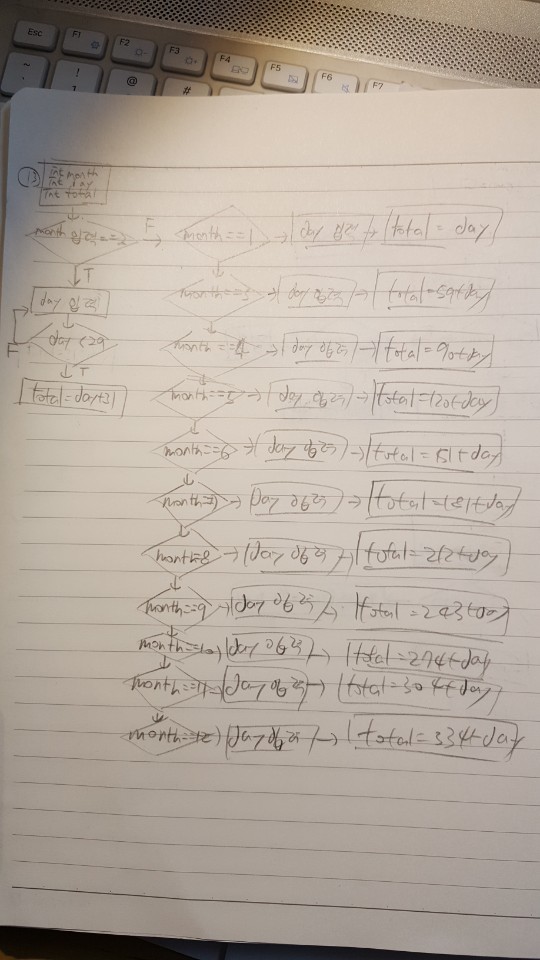 Esc F1 F2 F3 F4 F5 F6 F7
~ ! @ #
` 1
13) int month
int day
int total
month 입력 ==2 F month==1 day 입력 total = day
T
day 입력 month==3 day 입력 total=59+day
day<29 F month==4 day 입력 total=90+day
T
total=day+31 month==5 day 입력 total=120+day
month==6 day 입력 total=151+day
month==7 day 입력 total=181+day
month==8 day 입력 total=212+day
month==9 day 입력 total=243+day
month==10 day 입력 total=274+day
month==11 day 입력 total=304+day
month==12 day 입력 total=334+day